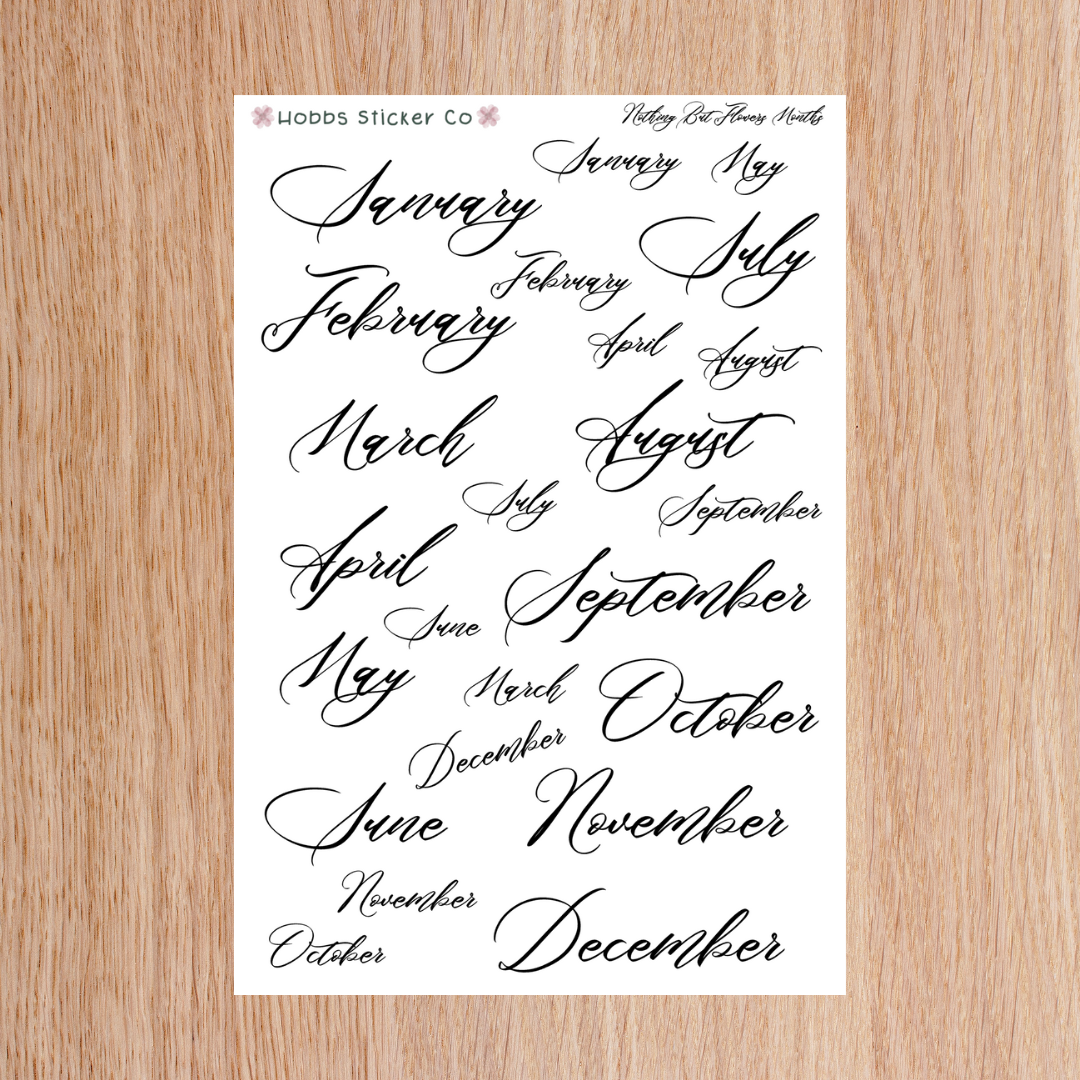 Hobbs Sticker Co
Nothing But Flowers Months
January
May
January
July
February
February
April
August
March
August
July
September
April
September
June
May
March
October
December
June
November
November
October
December